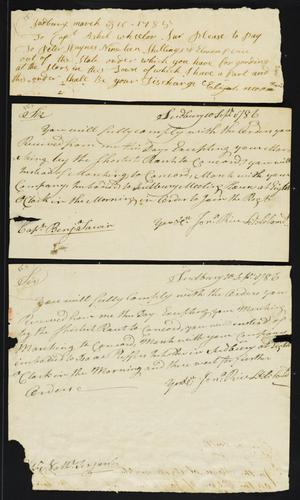 Sudbury march 1785
To Capt Asahel wheeler Sur please to pay
To Peter Haynes Nine ten Shillings & Elevenpence
out of the State order which you have for
at the Stors in this Town of which I have a Part and
this order Shall Be your Discharge Elijah
Sir Sudbury 10 Sept 1786
You will fully comply with the Orders you
Received from me this Day Excepting your Marching
by the Shortest Rout to Concord, you will
instead of Marching to Concord, March with your
Company to Sudbury Meeting house at Eight
Clock in the Morning in order to Join the Regt
Yours Jona Rice Lt Colonel
Capt Benja Sawin
Sir Sudbury 10 Sept 1786
You will fully Comply with the Orders you
Received from me this Day Excepting your Marching
by the Shortest Rout to Concord, you will instead of
Marching to Concord, March with your Company
to Isaac in Sudbury at Eight
Clock in the Morning and there wait for further
Orders
Yours Jona Rice Lt Colonel